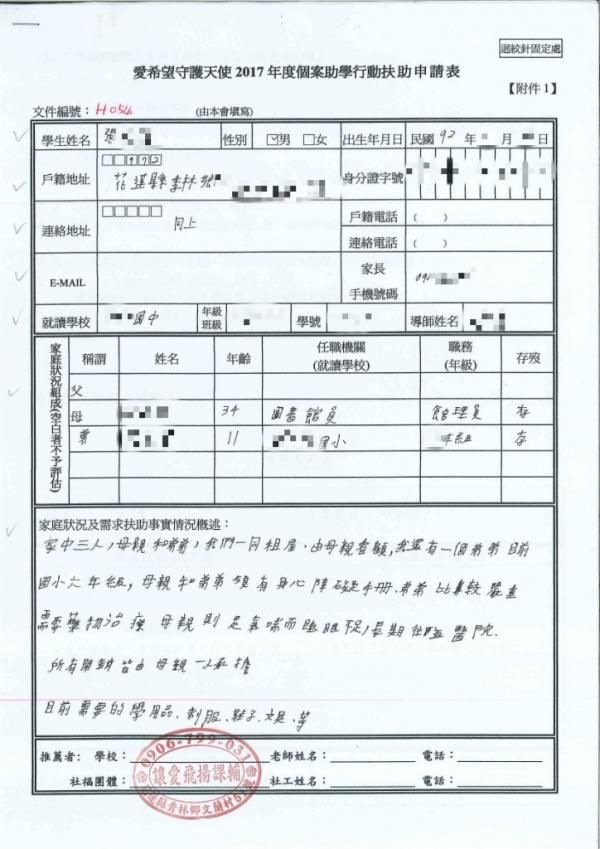 迴紋針固定處
愛希望守護天使 2017 年度個案助學行動扶助申請表
【附件 1】
文件編號：H054 (由本會填寫)
學生姓名 張 性別 ☑男 □女 出生年月日 民國 92 年 月 日
戶籍地址 972 花蓮縣秀林鄉 身分證字號
連絡地址 同上 戶籍電話 ( )
連絡電話 ( )
E-MAIL 家長手機號碼 09
就讀學校 國中 年級班級 學號 導師姓名
家庭狀況組成(空白者不予評估)
稱謂 姓名 年齡 任職機關(就讀學校) 職務(年級) 存歿
父
母 34 圖書館員 館理員 存
弟 11 國小 年組 存
家庭狀況及需求扶助事實情況概述：
家中三人,母親和弟弟,我們一同租屋.由母親看顧,我還有一個弟弟目前
國小六年組,母親和弟弟領有身心障礙手冊.弟弟比較嚴重
需要藥物治療 母親則是氣喘而睡眠 長期 醫院.
所有開銷皆由母親一人承擔
目前需要的學用品、制服、鞋子、文具、等
推薦者：學校： 老師姓名： 電話：
社福團體： 社工姓名： 電話：
0906-799-031
讓愛飛揚課輔
縣秀林鄉文蘭村